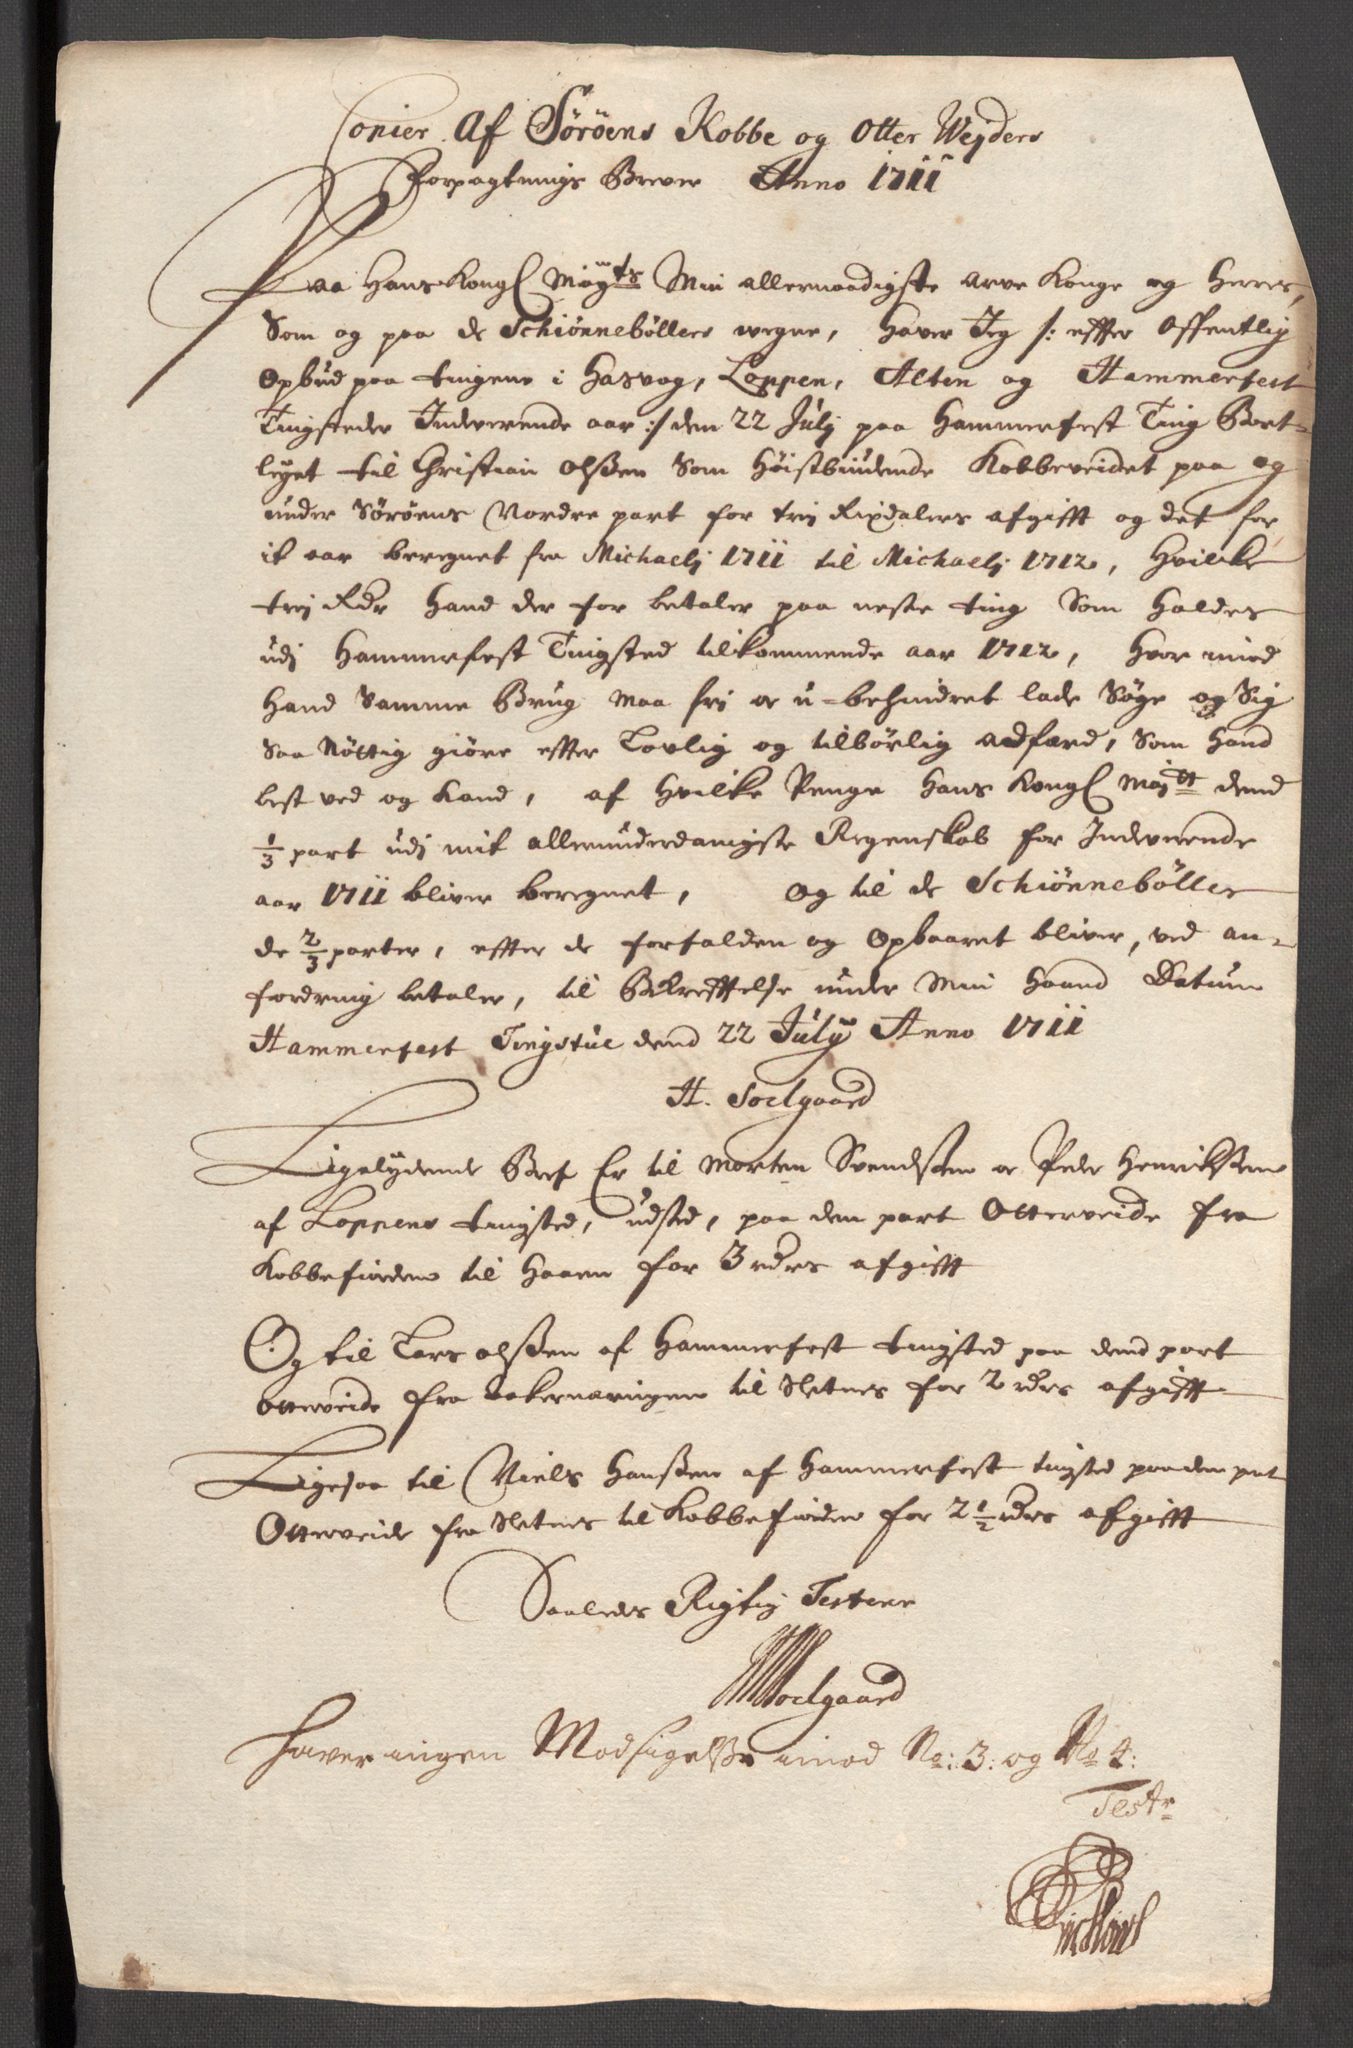 Copier af Söröens Kobbe og Otter Weyders
Forpagtnings Brever Anno 1711
Paa Hans Kongl Mayts Min allernaadigste arve Konge og Herres,
Som og paa de Schiönneböllers wegne, haver Jeg /: effter offentlig
Opbud paa tingene i Hasvog, Loppen, Alten og Hammerfest
Tingsteder Indeverende aar :/ den 22 Julj paa Hammerfest Ting Bort-
leyet til Christian olßen Som Höistbüdende Kobbeveidet paa og
under Söröens Nordre part for trej Rixdalers afgifft og det for
it aar beregnet fra Michaelj 1711 til Michaelj 1712, Hvilke
trej Rdr Hand der for betaler paa neste ting Som holdes
udj Hammerfest Tingsted tilkommende aar 1712, Hvor imod
Hand Samme Brug maa frj oc u-behindret lade Söge og Sig
Saa Nöttig giöre effter Lovlig og tilbörlig adfærd, Som Hand
best ved og Kand, af Hvilke Penge Hans Kongl Majtt dend
1/3 part udj mit allerunderdanigste Regenskab for Indeverende
aar 1711 bliver beregnet, og til de Schiönneböller
de 2/3 parter, effter de forfalden og Opbaaret bliver, ved an-
fordring betaler, til Bekrefftelse under Min Haand Datum
Hammerfest Tingstue dend 22 July Anno 1711
H. Soelgaard
Ligelydende Bref Er til Morten Svendßen oc Peder Henrikßen
af Loppens tingsted, udsted, paa den part Otterveide fra
Kobbefiorden til Haaen for 3 rdrs afgifft
Og til Lars olßen af Hammerfest tingsted paa dend part
otterveide fra til Sletnes for 2 rdrs afgifft
Ligesaa til Niels Hanßen af Hammerfest tingsted paa den part
Otterveide fra Sletnes til Kobbefiorden for 2 1/2 rdrs afgifft
Saaledes Rigtig Testerer
HSoelgaard
Haver ingen Modsigelße imod No: 3: og No 4:
Testr